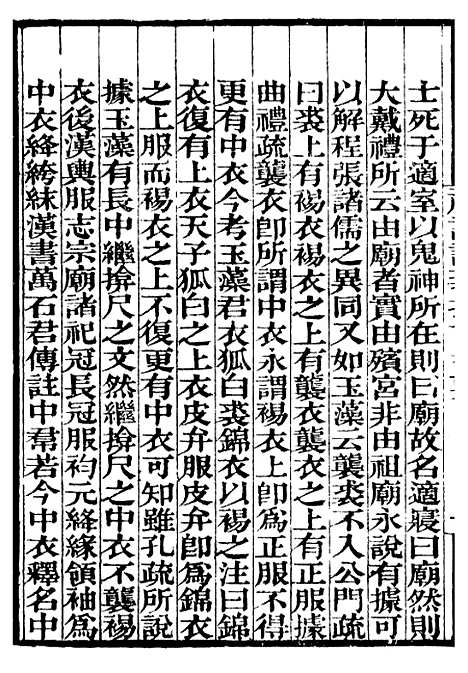 士死于適室以鬼神所在則曰廟故名適寢曰廟然則
大戴禮所云由廟者實由殯宮非由祖廟永說有據可
以解程張諸儒之異同又如玉藻云襲裘不入公門疏
曰裘上有裼衣裼衣之上有襲衣襲衣之上有正服據
曲禮疏襲衣卽所謂中衣永謂裼衣上卽爲正服不得
更有中衣今考玉藻君衣狐白裘錦衣以裼之注曰錦
衣復有上衣天子狐白之上衣皮弁服皮弁卽爲錦衣
之上服而裼衣之上不復更有中衣可知雖孔疏所說
據玉藻有長中繼揜尺之文然繼揜尺之中衣不襲裼
衣後漢輿服志宗廟諸祀冠長冠服袀元絳緣領袖爲
中衣絳絝絑漢書萬石君傳註中帬若今中衣釋名中